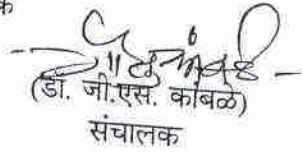 क
(डॉ. जी.एस. कांबळे)
संचालक